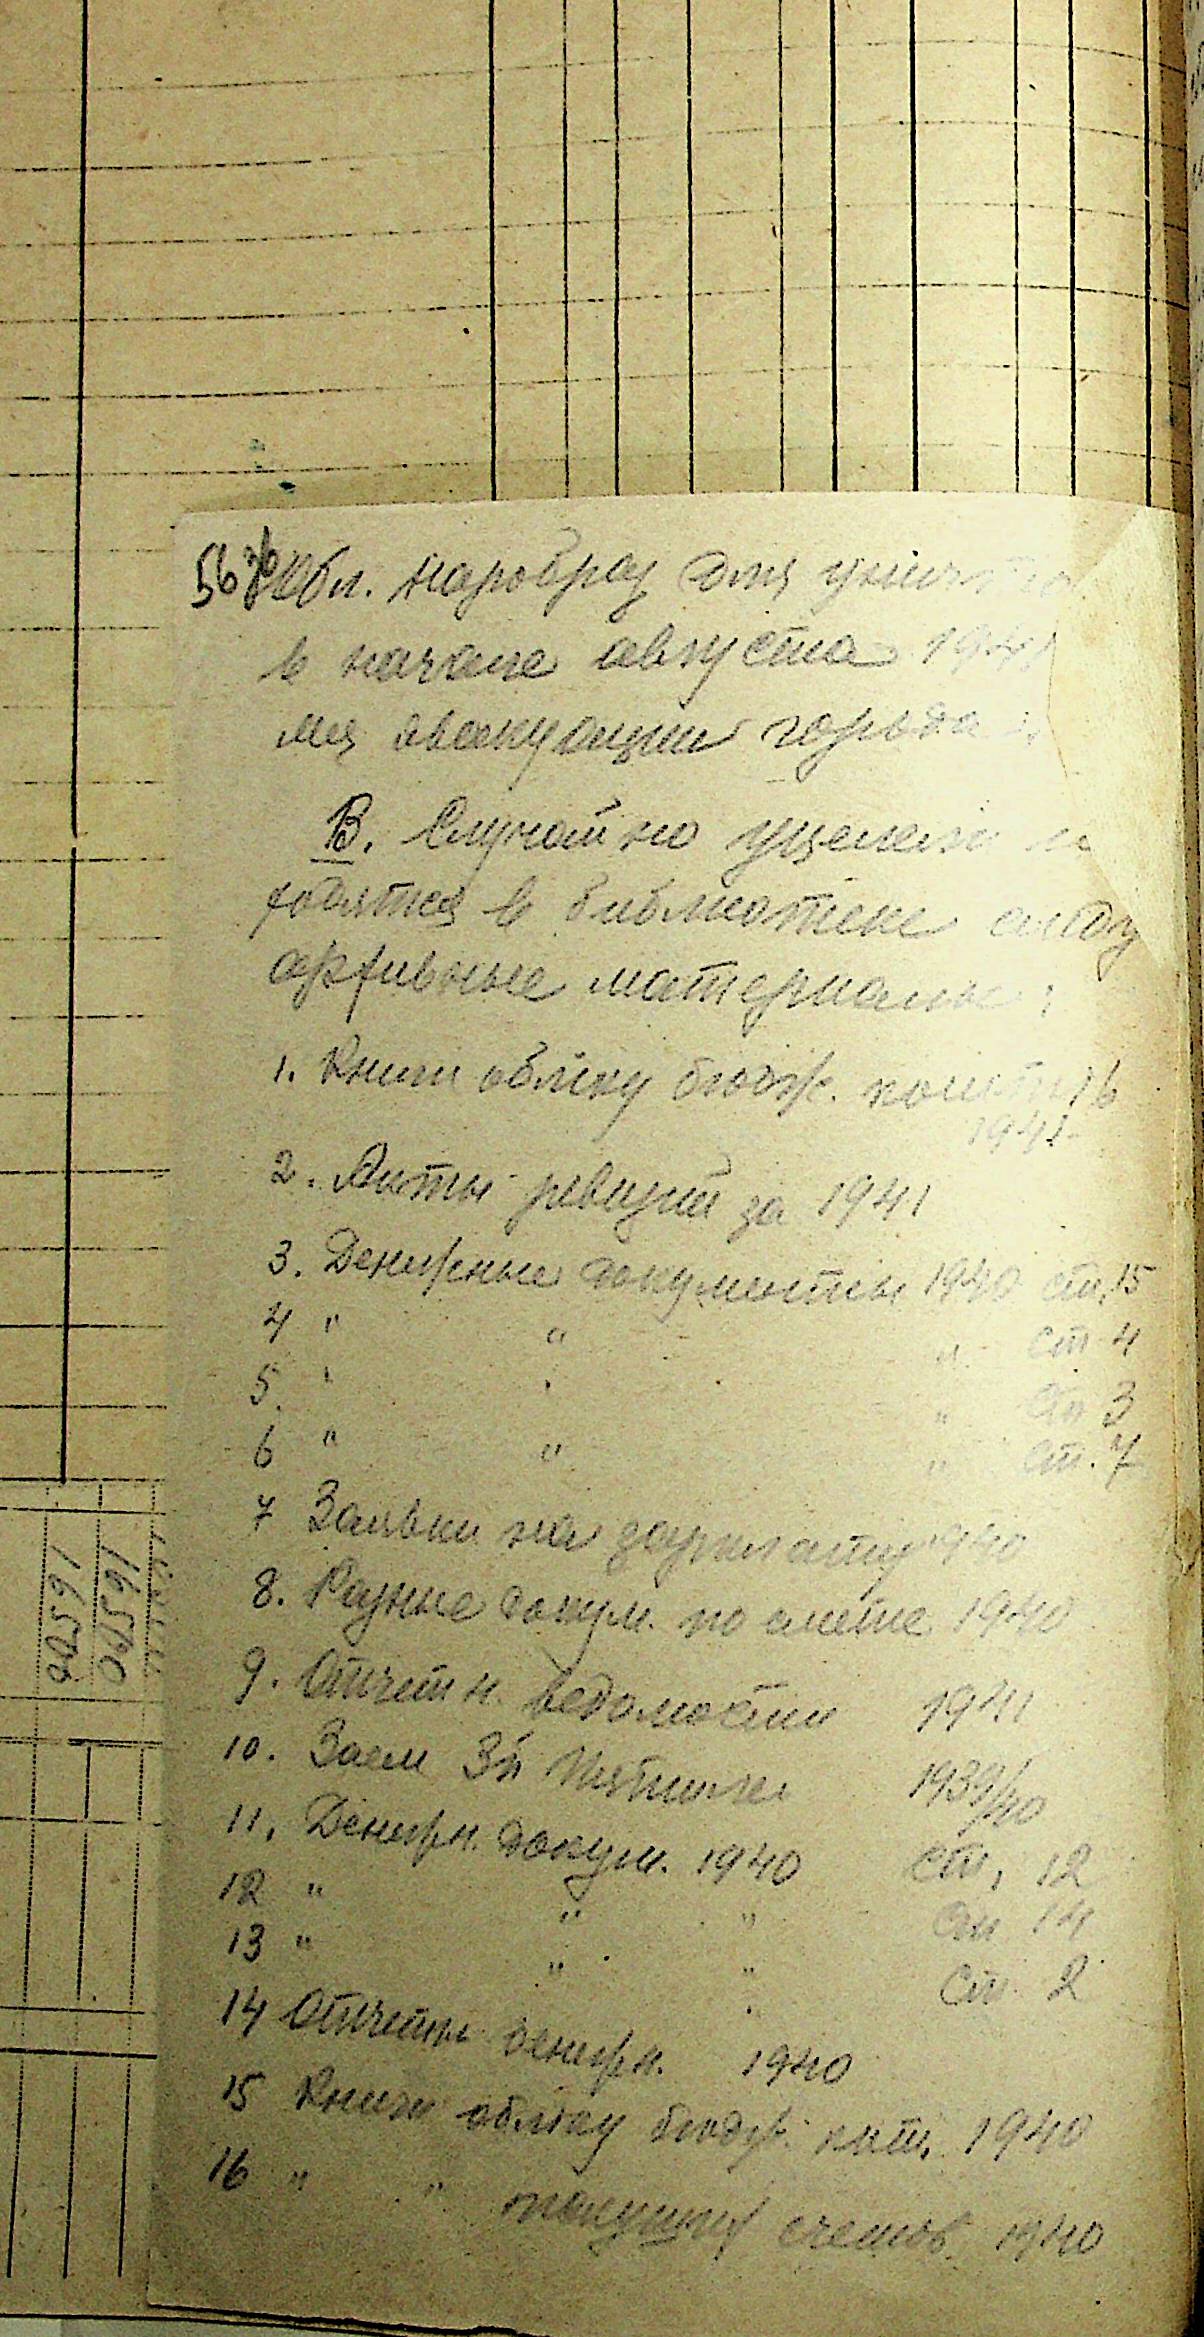 56 Обл. наробраз для уничто
в начале августа 1941
мя эвакуации города
В. Случайно уцелели и
ходятся в библиотеке следу
архивные материалы:
1. Книги обліку бюдж. коштів
1941
2. Акты ревизий за 1941
3. Денежные документы 1940 ст. 15
4 " " " ст 4
5. " " " ст 3
6 " " " ст. 7
7 Заявки на зарплату 1940
8. Разные докум. по смете 1940
9. Отчетн. ведомости 1941
10. Заем 3й Пятилет 1939/40
11. Денежн. докум. 1940 ст. 12
12 " " " ст 14
13 " " " ст. 2
14 Отчеты денежн. 1940
15 Книги обліку бюдж. кошт. 1940
16 " " текущих счетов 1940
00591
00591